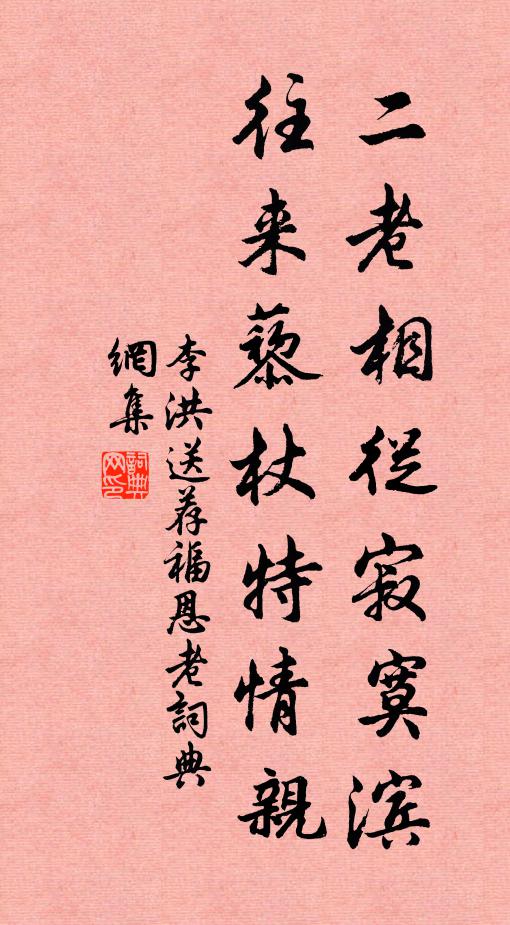 二老相從寂寞滨
往来藜杖特情親
李洪送荐福恩老詞典
網集
詞典网印